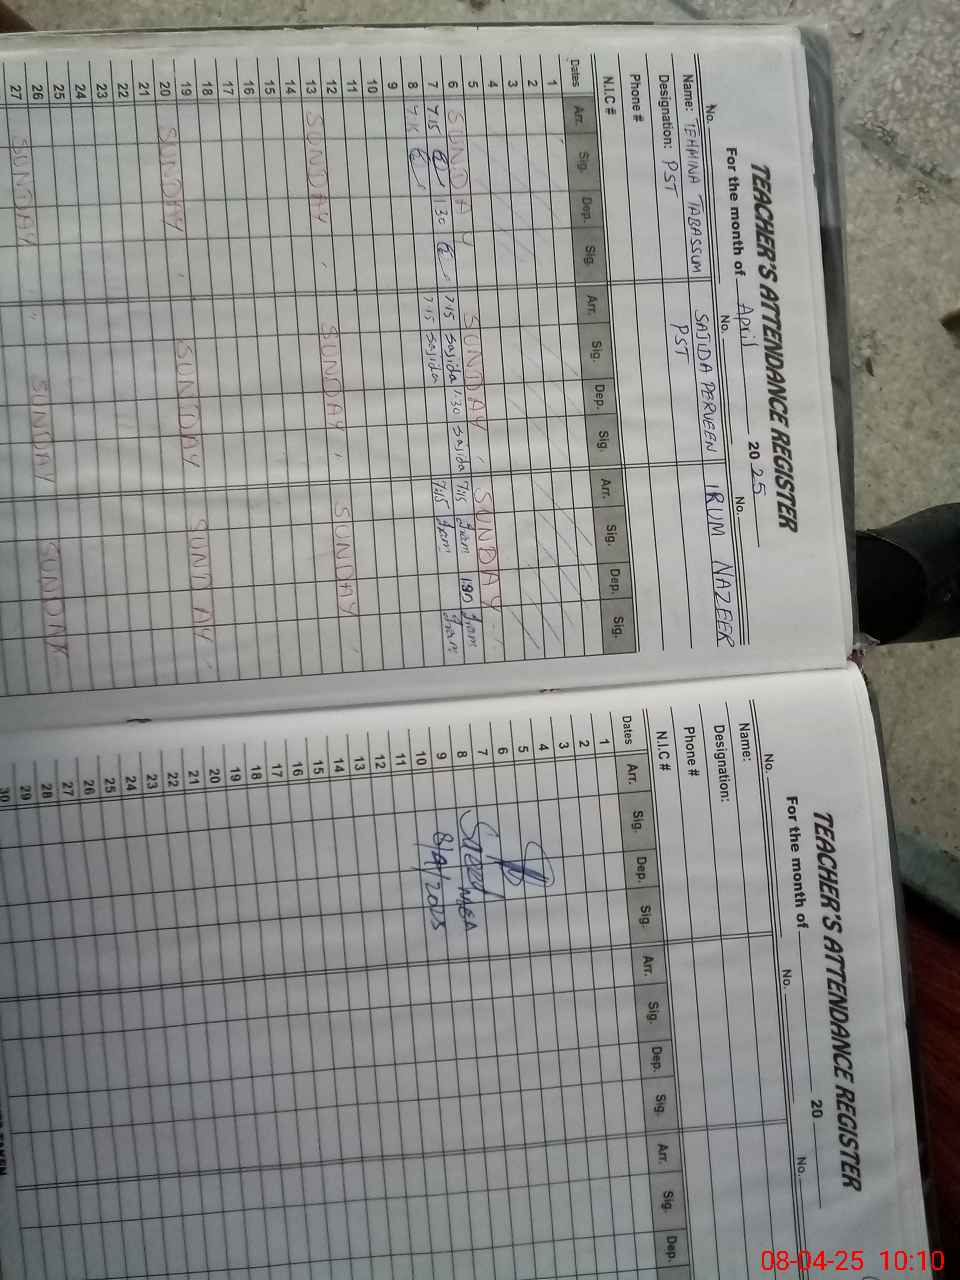 TEACHER'S ATTENDANCE REGISTER
For the month of April 2025
No. No. No.
Name: TEHMINA TABASSUM SAJIDA PERVEEN IRUM NAZEER
Designation: PST PST
Phone #
N.I.C #
Dates Arr. Sig. Dep. Sig. Arr. Sig. Dep. Sig. Arr. Sig. Dep. Sig.
1
2
3
4
5
6 SUNDAY SUNDAY SUNDAY
7 7:15 1:30 7:15 sajida 1:30 sajida 7:15 Iram 1:30 Iram
8 7:15 7:15 sajida 7:15 Iram Iram
9
10
11
12
13 SUNDAY SUNDAY SUNDAY
14
15
16
17
18
19
20 SUNDAY SUNDAY SUNDAY
21
22
23
24
25
26
27 SUNDAY SUNDAY SUNDAY
TEACHER'S ATTENDANCE REGISTER
For the month of 20
No. No. No.
Name:
Designation:
Phone #
N.I.C #
Dates Arr. Sig. Dep. Sig. Arr. Sig. Dep. Sig. Arr. Sig. Dep.
1
2
3
4
5
6
7
8 Saeed MEA
9 8/4/2025
10
11
12
13
14
15
16
17
18
19
20
21
22
23
24
25
26
27
28
29
30
08-04-25 10:10